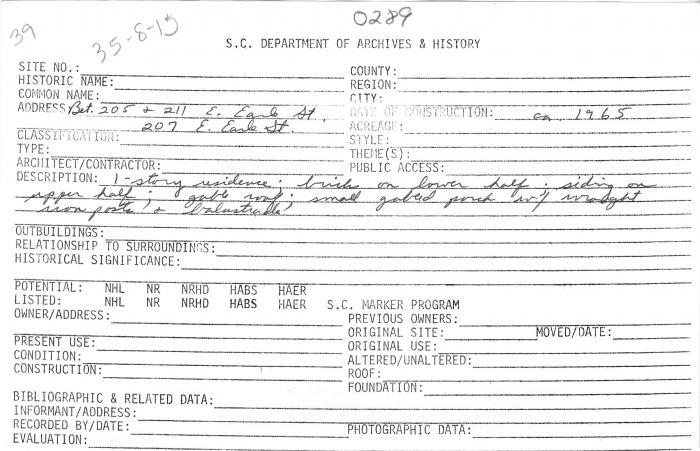 0289
39
35-8-15
S.C. DEPARTMENT OF ARCHIVES & HISTORY
SITE NO.: COUNTY:
HISTORIC NAME: REGION:
COMMON NAME: CITY:
ADDRESS Bet. 205 & 211 E. Earle St. DATE OF CONSTRUCTION: ca. 1965
207 E. Earle St. ACREAGE:
CLASSIFICATION: STYLE:
TYPE: THEME(S):
ARCHITECT/CONTRACTOR: PUBLIC ACCESS:
DESCRIPTION: 1-story residence; brick on lower half; siding on
upper half; gable roof; small gabled porch w/ wrought
iron posts & balustrade
OUTBUILDINGS:
RELATIONSHIP TO SURROUNDINGS:
HISTORICAL SIGNIFICANCE:
POTENTIAL: NHL NR NRHD HABS HAER
LISTED: NHL NR NRHD HABS HAER S.C. MARKER PROGRAM
OWNER/ADDRESS: PREVIOUS OWNERS:
ORIGINAL SITE: MOVED/DATE:
PRESENT USE: ORIGINAL USE:
CONDITION: ALTERED/UNALTERED:
CONSTRUCTION: ROOF:
FOUNDATION:
BIBLIOGRAPHIC & RELATED DATA:
INFORMANT/ADDRESS:
RECORDED BY/DATE: PHOTOGRAPHIC DATA:
EVALUATION: